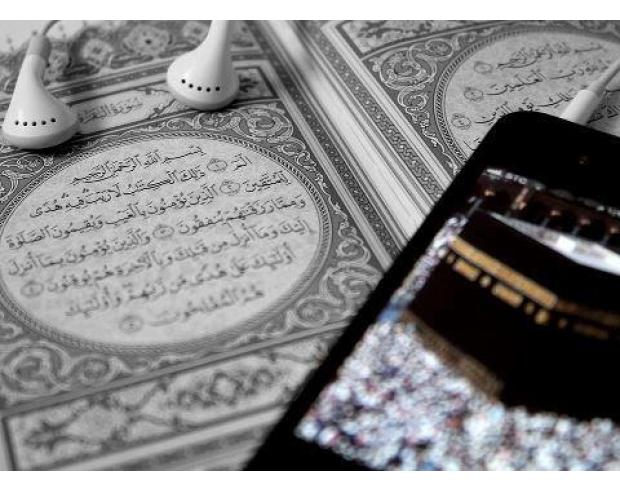 سُورَةُ البَقَرَةِ
بِسْمِ اللَّهِ الرَّحْمَٰنِ الرَّحِيمِ
الٓمٓ ١ ذَٰلِكَ الْكِتَٰبُ لَا رَيْبَ فِيهِ هُدًى
لِلْمُتَّقِينَ ٢ الَّذِينَ يُؤْمِنُونَ بِالْغَيْبِ وَيُقِيمُونَ الصَّلَوٰةَ
وَمِمَّا رَزَقْنَٰهُمْ يُنفِقُونَ ٣ وَالَّذِينَ يُؤْمِنُونَ بِمَا أُنزِلَ
إِلَيْكَ وَمَا أُنزِلَ مِن قَبْلِكَ وَبِالْآخِرَةِ هُمْ يُوقِنُونَ ٤
أُولَٰئِكَ عَلَىٰ هُدًى مِن رَبِّهِمْ وَأُولَٰئِكَ
هُمُ الْمُفْلِحُونَ ٥
بِسْمِ اللَّهِ الرَّحْمَٰنِ الرَّحِيمِ
رَبِّ الْعَٰلَمِينَ
STC